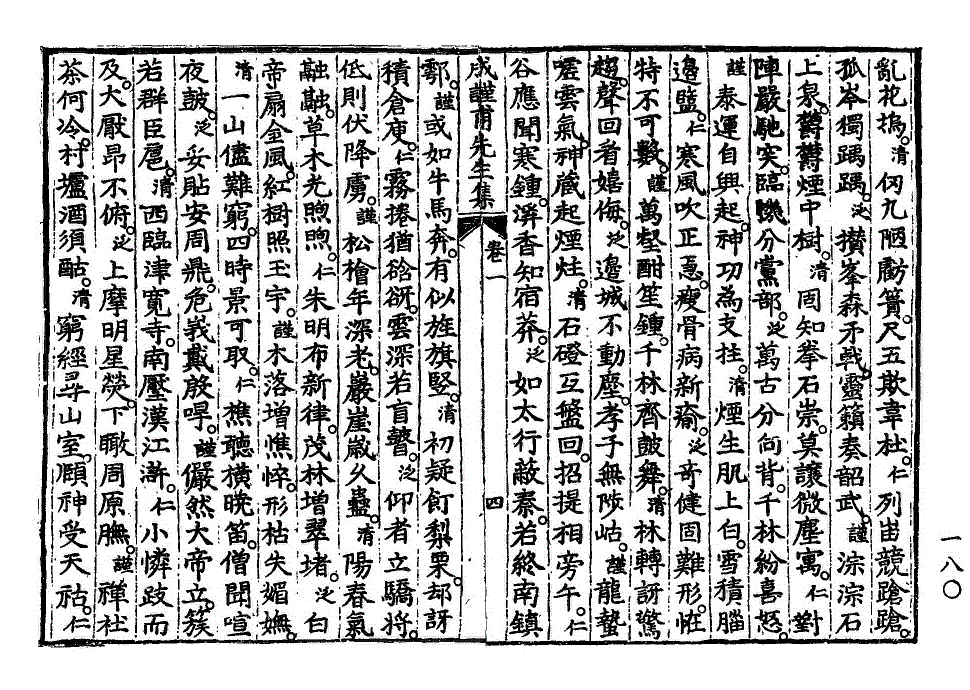 亂花塢。淸仞九陋虧簣。尺五欺韋杜。仁列岫競蹌蹌。
孤岑獨踽踽。泛攢峯森矛戟。靈籟奏韶武。謹淙淙石
上泉。欝欝煙中樹。淸固知拳石崇。莫讓微塵寓。仁對
陣嚴馳突。臨機分黨部。泛萬古分向背。千林紛喜怒。
謹泰運自興起。神功為支拄。淸煙生肌上白。雪積腦
邊盬。仁寒風吹正急。瘦骨病新瘉。泛奇健固難形。恠
特不可數。謹萬壑酣笙鍾。千林齊皷舞。淸林轉訝驚
趨。聲回看嬉侮。泛邊城不動塵。孝子無陟岵。謹龍蟄
嘘雲氣。神藏起煙炷。淸石磴互盤回。招提相旁午。仁
谷應聞寒鍾。濟香知宿莽。泛如太行蔽秦。若終南鎮
成謹甫先生集 卷一 四
鄠。謹或如牛馬奔。有似旌旗竪。淸初疑飣梨栗。却訝
積倉庾。仁霧捲猶谽谺。雲深若盲瞽。泛仰者立驕將。
低則伏降虜。謹松檜年深老。巖崖歲久蠱。淸陽春氣
融融。草木光煦煦。仁朱明布新律。茂林增翠堵。泛白
帝扇金風。紅樹照玉宇。謹木落增憔悴。形枯失媚嫵。
淸一山儘難窮。四時景可取。仁樵聽橫晩笛。僧聞喧
夜皷。泛妥貼安周鼎。危義戴殷冔。謹儼然大帝立。簇
若群臣扈。淸西臨津寬寺。南壓漢江滸。仁小憐跂而
及。大厭昂不俯。泛上摩明星熒。下瞰周原膴。謹禪社
茶何冷。村壚酒須酤。淸窮經尋山室。頤神受天祜。仁
一八〇